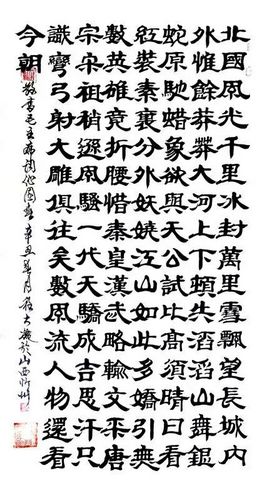 北國風光千里冰封萬里雪飄望長城內
外惟餘莽莽大河上下頓失滔滔山舞銀
蛇原馳蜡象欲與天公試比高須晴日看
紅裝素裹分外妖嬈江山如此多嬌引無
數英雄競折腰惜秦皇漢武略輸文采唐
宗宋祖稍遜風騷一代天驕成吉思汗只
識彎弓射大雕俱往矣數風流人物還看
今朝
敬書毛主席詞沁園春 辛丑 月 於山西忻州